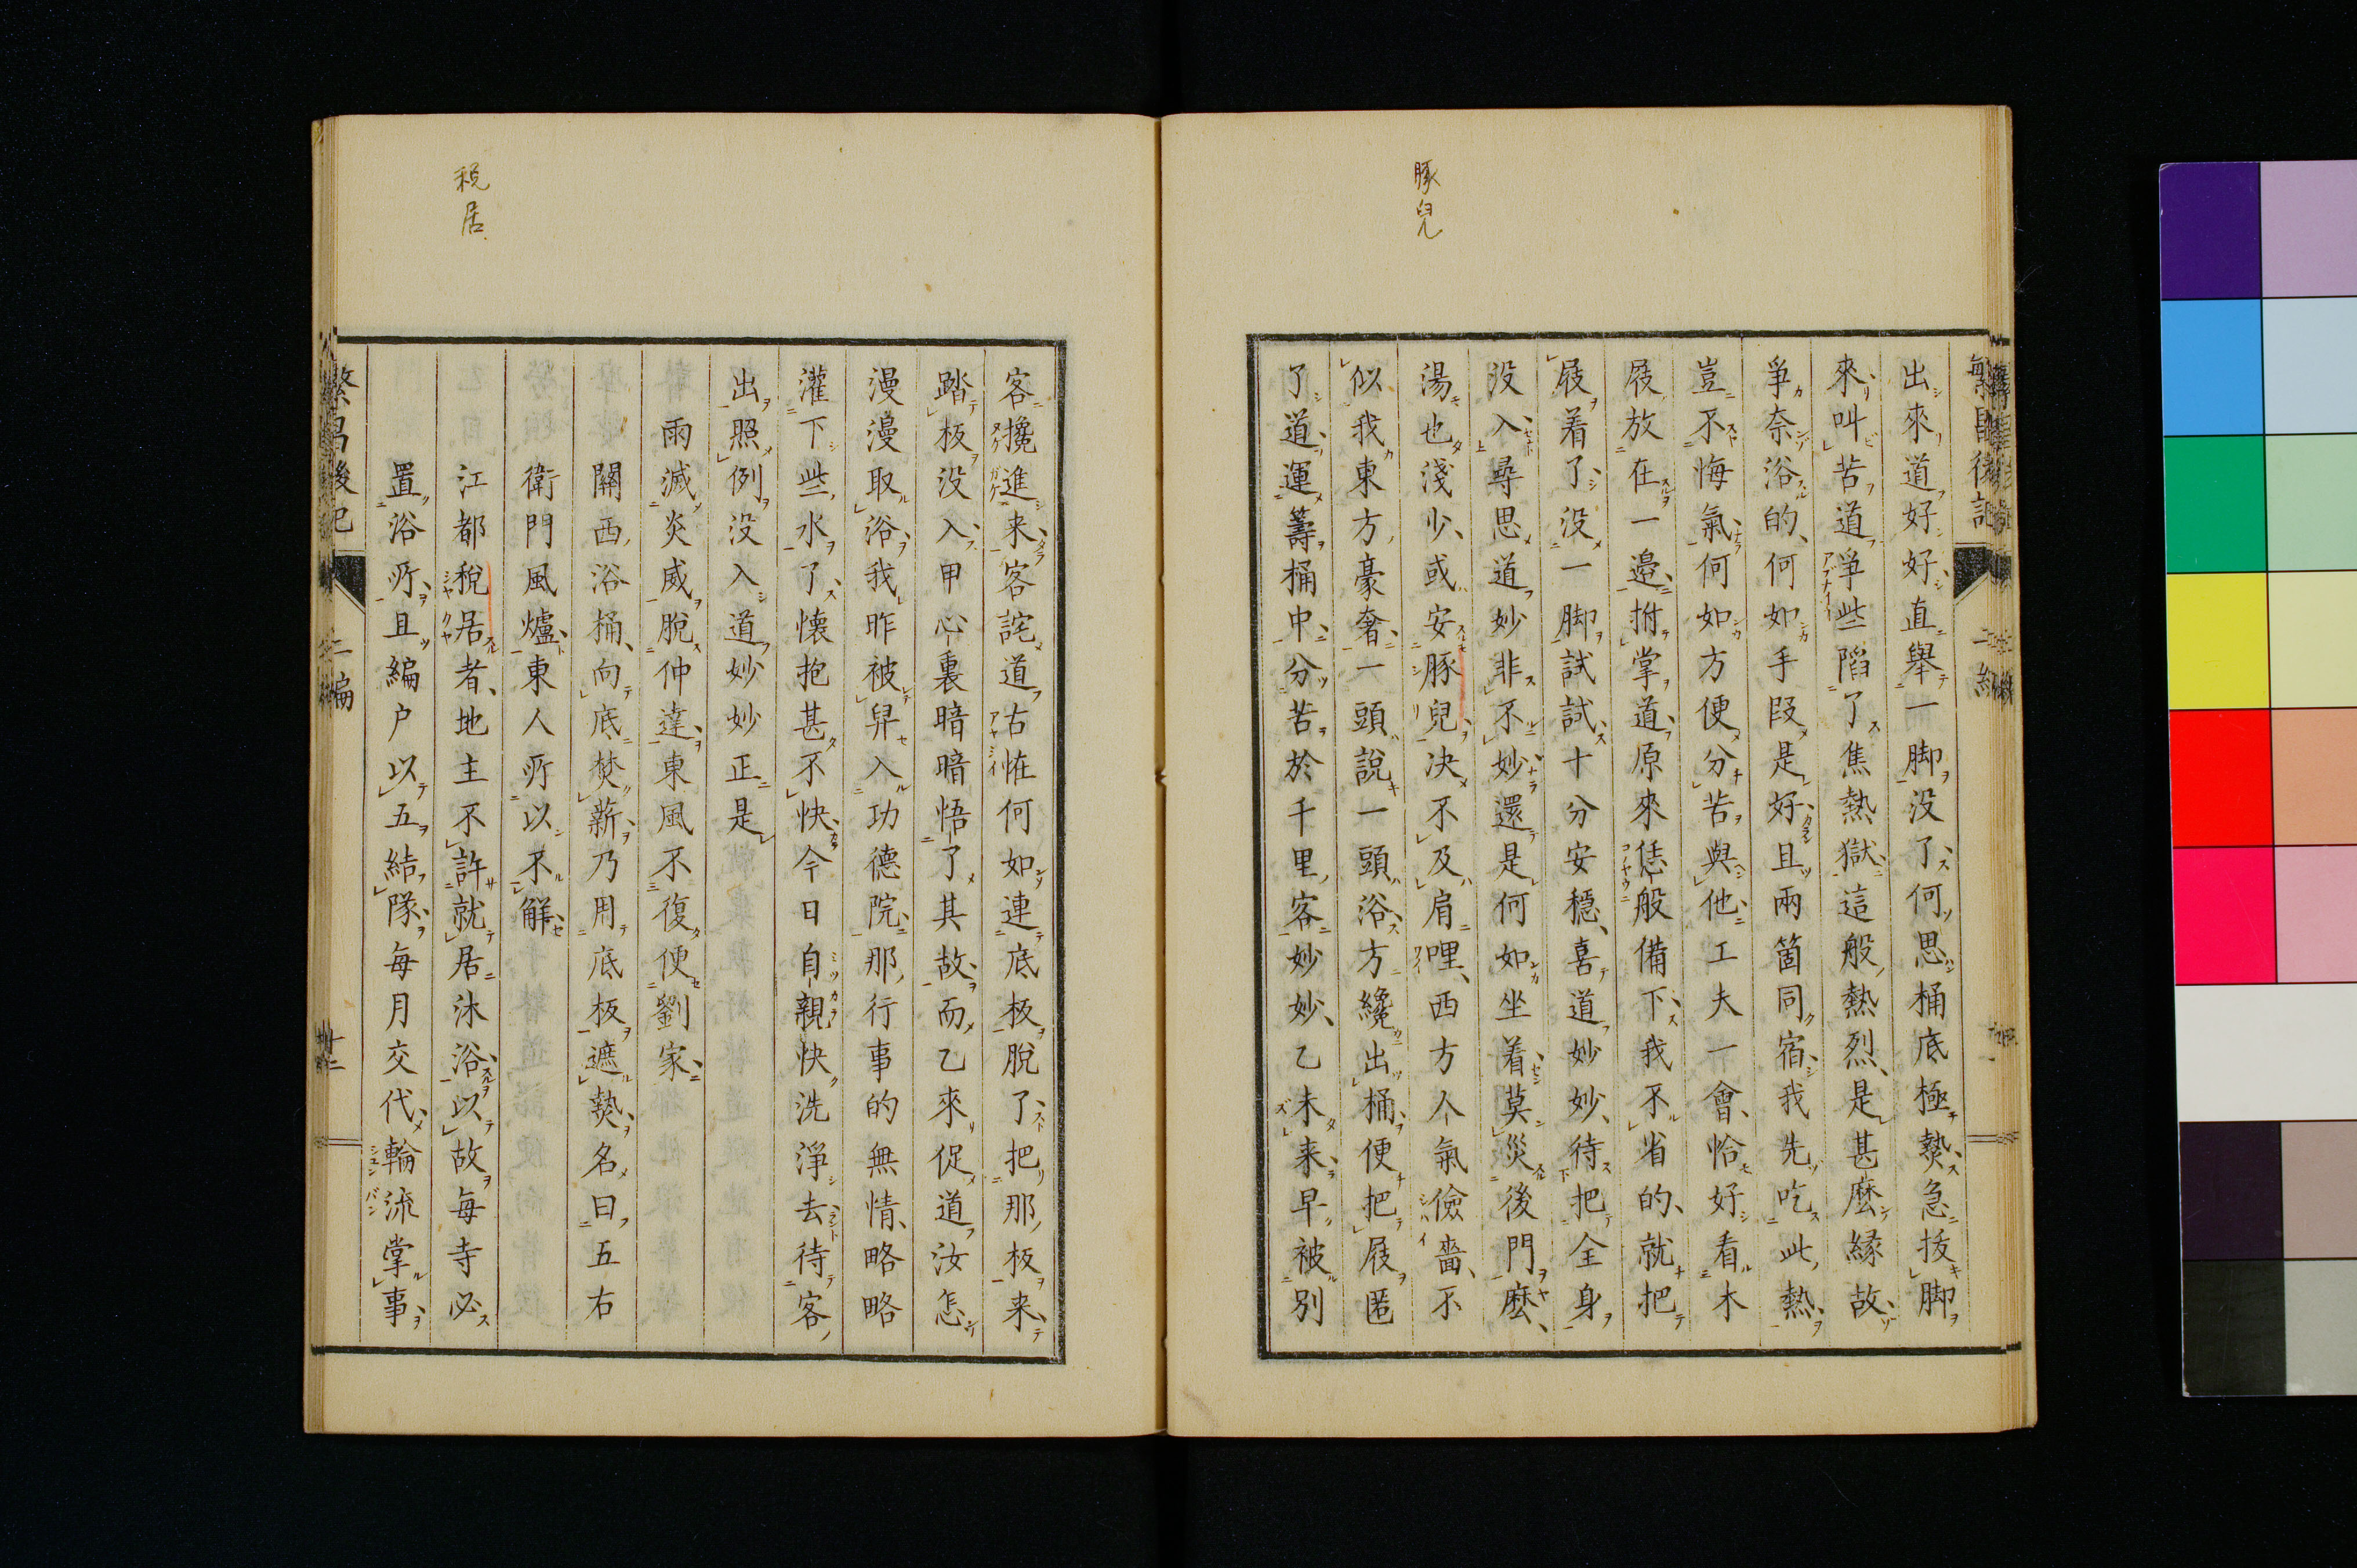 豚兒
出來道好好直舉一脚没了何思桶底極𤍠急抜脚
來叫苦道爭些陷了焦熱獄這般熱烈是甚麼縁故
爭奈浴的何如手段是好且兩箇同宿我先吃此熱
豈不悔氣何如方便分苦與他工夫一會恰好看木
屐放在一邉拊掌道原來恁般備下我不省的就把
屐着了没一脚試試十分安穩喜道妙妙待把全身
没入尋思道妙非不妙還是何如坐着莫災後門麼
湯也淺少或安豚兒决不及肩哩西方人氣儉嗇不
似我東方豪奢一頭説一頭浴方纔出桶便把屐匿
了道運籌桶中分苦於千里客妙妙乙未来早被别
税居
客攙進来客詫道古恠何如連底板脱了把那板来
踏板没入甲心裏暗暗悟了其故而乙來促道汝怎
漫漫取浴我昨被舁入功德院那行事的無情略略
灌下些水了懐抱甚不快今日自親快洗淨去待客
出照例没入道妙妙正是
雨滅炎威脱仲達東風不復便劉家
關西浴桶向底焚薪乃用底板遮𤍠名曰五右
衛門風爐東人所以不解
江都税居者地主不許就居沐浴以故每寺必
置浴所且編户以五結隊每月交代輪流掌事
繁昌後記
二編